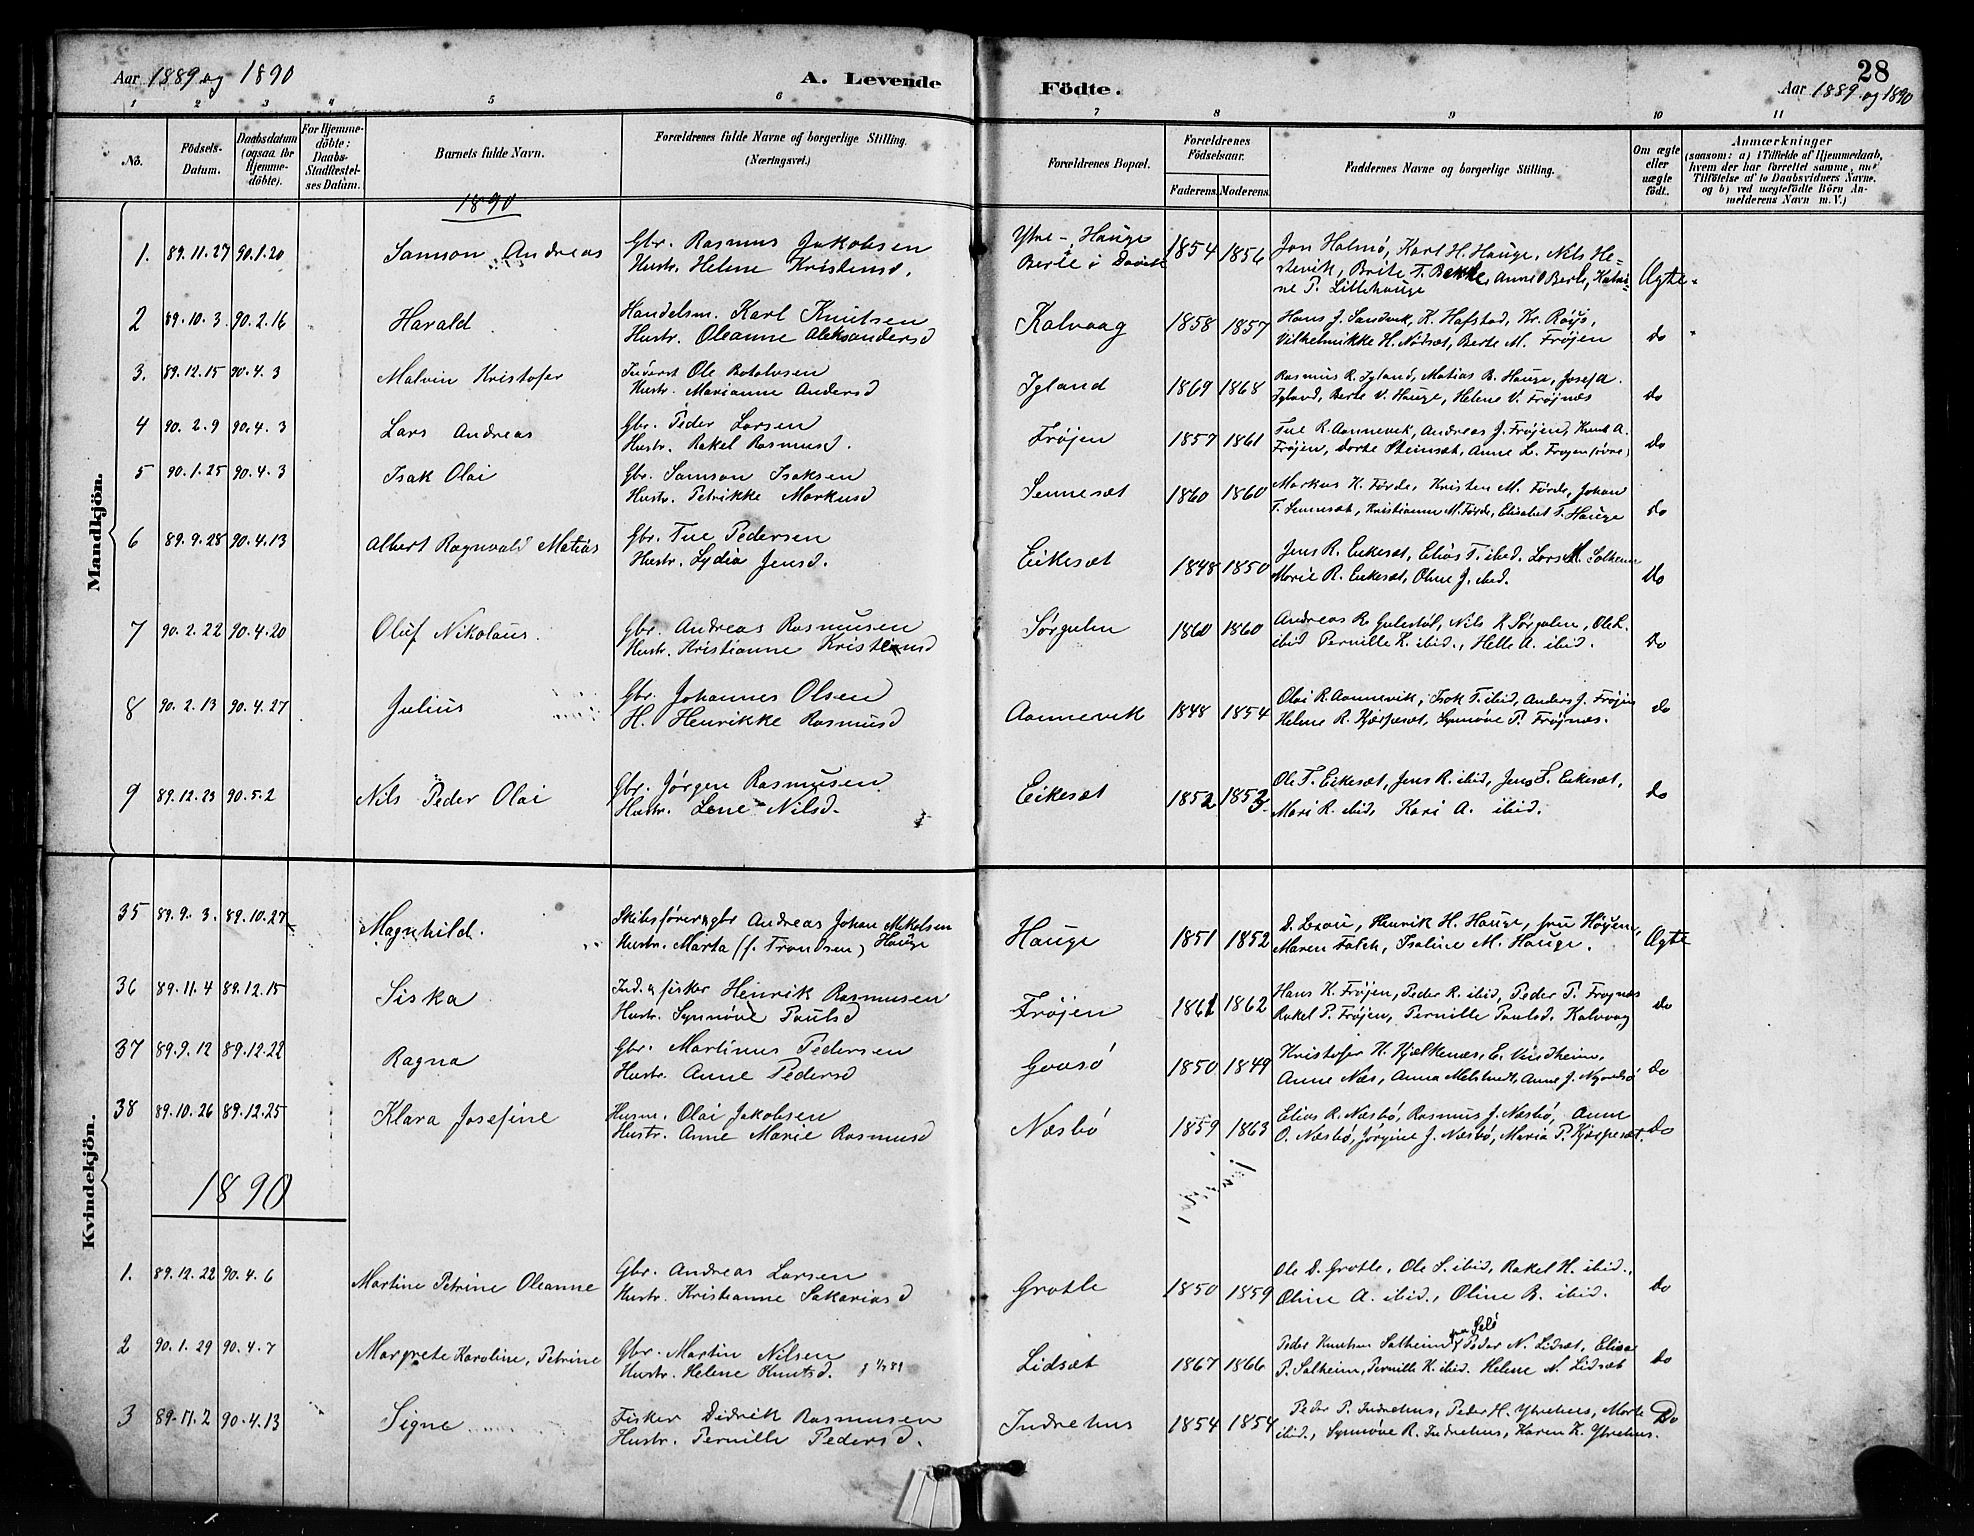 Aar 1889 og 1890 A. Levende Födte. 28
Aar 1889 og 1890
1 2 3 4 5 6 7 8 9 10 11
No. Födsels-Datum. Daabsdatum (ogsaa for Hjemme-döbte). For Hjemme-döbte: Daabs-Stadfæstel-ses Datum. Barnets fulde Navn. Forældrenes fulde Navne og borgerlige Stilling. (Næringsvei.) Forældrenes Bopæl. Forældrenes Födselsaar. Faderens. Moderens. Faddernes Navne og borgerlige Stilling. Om ægte eller uægte födt. Anmærkninger (saasom: a) i Tilfælde af Hjemmedaab, hvem der har forrettet samme, med Tilföielse af to Daabsvidners Navne, og b) ved uægtefödte Börn An-melderens Navn m. V.)
Mandkjön.
1890
1. 89.11.27 90.1.20 Samson Andreas Gbr. Rasmus Jakobsen Ytre-Hauge 1854 1856 Jon Halmø, Karl H. Hauge, Nils He-
Hustr. Helene Kristensd. Berle i Davik stevik, Brite T. Berle, Anne O Berle, Katri- Ægte
ne P. Littlehauge
2 89.10.3. 90.2.16 Harald Handelsm. Karl Knutsen Kalvaag 1858 1857 Hans J. Sandvik, K. Hafstad, Kr. Røys,
Hustr. Oleanne Aleksandersd Vilhelmikke H. Nødsæt, Berte M. Frøjen do
3. 89.12.15 90.4.3 Malvin Kristofer Inderst Ole Botolvsen Igland 1869 1868 Rasmus R. Igland, Matias B. Hauge, Josef A.
Hustr. Marianne Andersd Igland, Berte V. Hauge, Helene V. Frøjnæs do
4 90.2.9 90.4.3 Lars Andreas Gbr. Peder Larsen Frøjen 1857 1861 Tue R. Aannevik, Andreas J. Frøjen, Knut A.
Hustr. Rakel Rasmusd. Frøjen, Dorte Steinsæt, Anne L. Frøjen (øvre) do
5 90.1.25 90.4.3 Isak Olai Gbr. Samson Isaksen Sennesæt 1860 1860 Markus K. Førde, Kristen M. Førde, Johan
Hustr. Petrikke Markusd T. Sennesæt, Kristianne M. Førde, Elisabet T. Hauge do
6 89.9.28 90.4.13 Albert Ragnvald Matias Gbr. Tue Pedersen Eikesæt 1848 1850 Jens R. Eikesæt, Elias T. ibid. Lars M. Salheim
Hustr. Lydia Jensd. Marie R. Eikesæt, Oline J. ibid. do
7 90.2.22 90.4.20 Oluf Nikolaus. Gbr. Andreas Rasmusen Sørgulen 1860 1860 Andreas R. Gulestøl, Nils R. Sørgulen, Ole L.
Hustr. Kristianne Kristensd ibid Pernille K. ibid., Helle A. ibid. do
8 90.2.13 90.4.27 Julius Gbr. Johannes Olsen Aannevik 1848 1854 Olai R. Aannevik, Isak T. ibid, Anders J. Frøjen
H. Henrikke Rasmusd Helene R. Kjæspesæt, Synnøve P. Frøjnæs. do
9 89.12.23 90.5.2 Nils Peder Olai Gbr. Jørgen Rasmusen Eikesæt 1852 1853 Ole T. Eikesæt, Jens R. ibid, Jens T. Eikesæt,
Hustr. Lene Nilsd. Mari R. ibid, Kari A. ibid. do
Kvindekjön.
35 89.9.3. 89.10.27 Magnhild. Skibsfører & gbr Andreas Johan Mikalsen Hauge 1851 1852 D. Lexau, Henrik H. Hauge, fru Høyem,
Hustr. Marta (f. Trondsen) Hauge Maren Falch, Isaline M. Hauge. Ægte
36 89.11.4 89.12.15 Siska Ind. & fisker Henrik Rasmusen Frøjen 1861 1862 Hans K. Frøjen, Peder R. ibid, Peder P. Frøjnæs
Hustr. Synnøve Paulsd Rakel P. Frøjen, Pernille Paulsd. Kalvaag do
37 89.9.12 89.12.22 Ragna Gbr. Martinus Pedersen Gaasø 1850 1849 Kristofer H. Kjælkenæs, E. Vindheim,
Hustr. Anne Pedersd Anne Næs, Anna Melstvedt, Anne J. do
38 89.10.26 89.12.25 Klara Josefine Husm. Olai Jakobsen Næsbø 1859 1863 Elias R. Næsbø, Rasmus J. Næsbø, Anne
Hustr. Anne Marie Rasmusd O. Næsbø, Jørgine J. Næsbø, Maria P. Kjæspesæt. do
1890
1. 89.12.22 90.4.6 Martine Petrine Oleanne Gbr. Andreas Larsen Grotle 1850 1859 Ole D. Grotle, Ole S. ibid, Rakel H. ibid.,
Hustr. Kristianne Sakariasd Oline A. ibid., Oline B. ibid. do
2 90.1.29 90.4.7 Margrete Karoline, Petrine Gbr. Martin Nilsen Lidsæt 1867 1866 Peder Knutsen Salheim paa Selø Peder N. Lidsæt, Elisa
Hustr. Helene Knutsd. P. Salheim, Pernille K. ibid. Helene N. Lidsæt do
3 89.11.2 90.4.13 Signe Fisker Didrik Rasmusen Indrehus 1854 1854 Peder P. Indrehus, Peder H. Ytrehus, Marte Do
Hustr. Pernille Pedersd. ibid., Synnøve R. Indrehus, Karen K. Ytrehus.